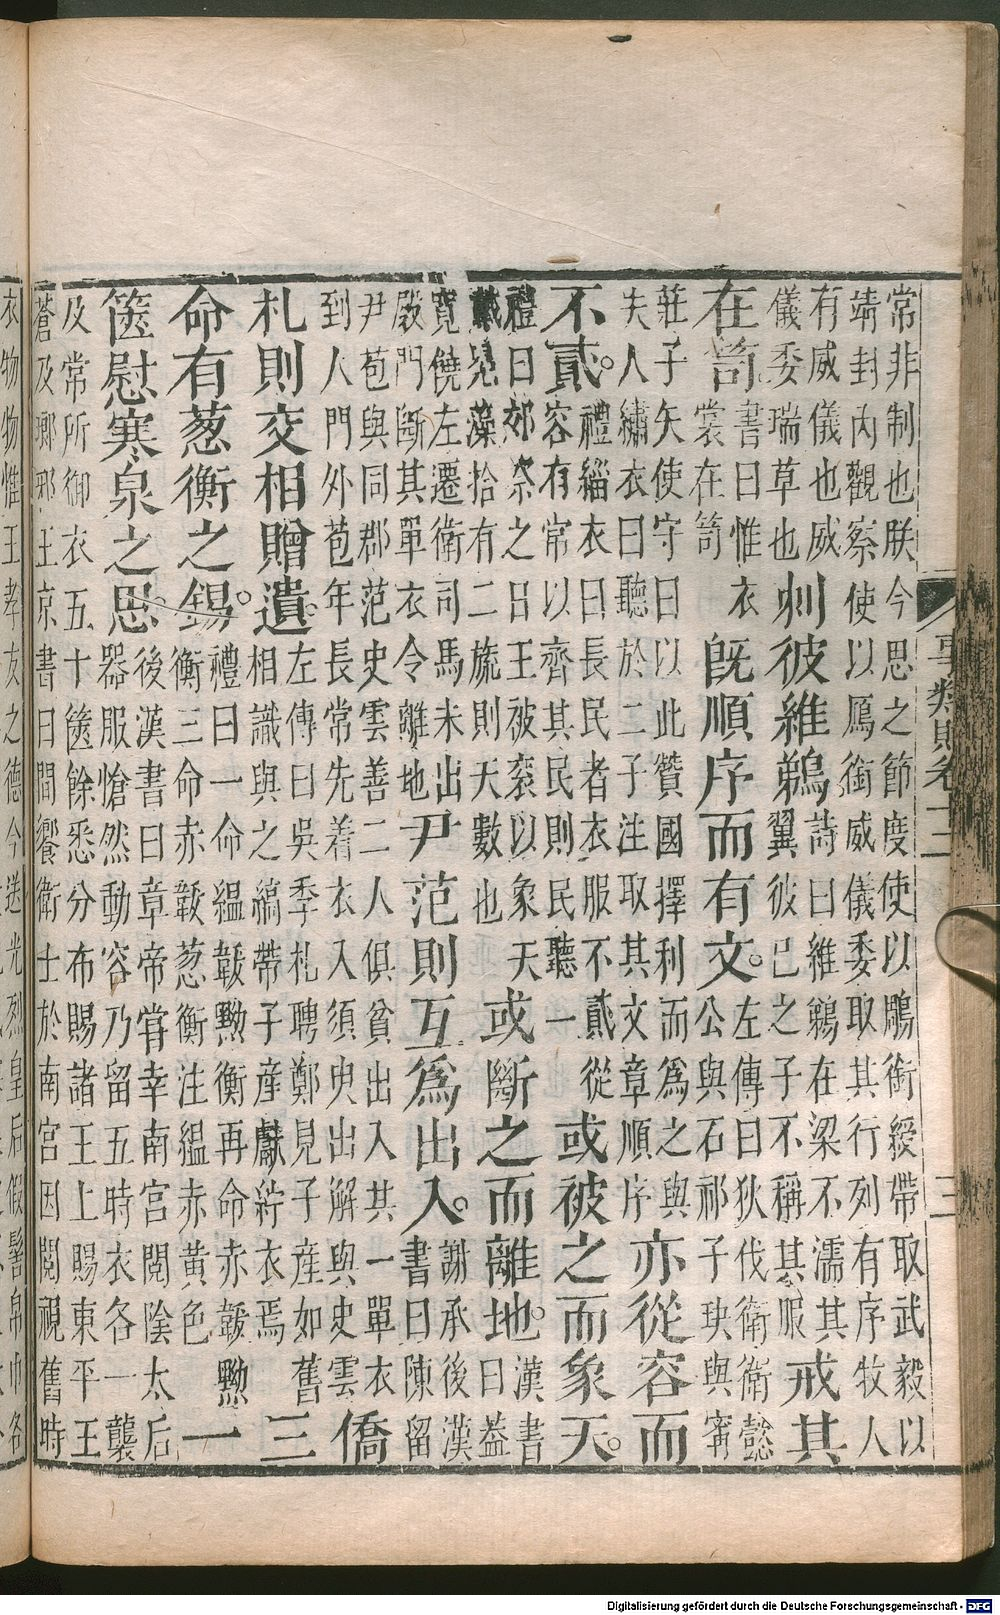 常非制也朕今思之節度使以鵰銜綬帶取武毅以
靖封內觀察使以鴈銜威儀委取其行列有序牧人
有威儀也威
儀委瑞草也
刺彼維鵜
詩曰維鵜在梁不濡其
翼彼已之子不稱其服
戒其
在笥
書曰惟衣
裳在笥
既順序而有文。
左傳曰狄伐衛衛懿
公與石祁子玦與甯
莊子矢使守曰以此贊國擇利而爲之與
夫人繡衣曰聽於二子注取其文章順序
亦從容而
不貳。
禮緇衣曰長民者衣服不貳從
容有常以齊其民則民聽一
或被之而象天。
禮曰郊祭之日王被衮以象天
戴冕藻拾有二旒則天數也
或斷之而離地。
漢書
曰蓋
寬饒左遷衛司馬未出
殿門斷其單衣令離地
尹范則互爲出入。
謝承後漢
書曰陳留
尹苞與同郡范史雲善二人俱貧出入共一單衣
到人門外苞年長常先着衣入須臾出解與史雲
僑
札則交相贈遺。
左傳曰吳季札聘鄭見子產如舊
相識與之縞帶子產獻紵衣焉
三
命有葱衡之錫。
禮曰一命縕韍黝衡再命赤韍黝
衡三命赤韍葱衡注縕赤黃色
一
篋慰寒泉之思。
後漢書曰章帝甞幸南宮閱陰太后
器服愴然動容乃留五時衣各一襲
及常所御衣五十篋餘悉分布賜諸王上賜東平王
蒼及瑯邪王京書曰間饗衛士於南宮因閱視舊時
衣物物惟王孝友之德今送光烈皇后假髻帛巾各
事類賦卷十二
三
Digitalisierung gefördert durch die Deutsche Forschungsgemeinschaft - DFG